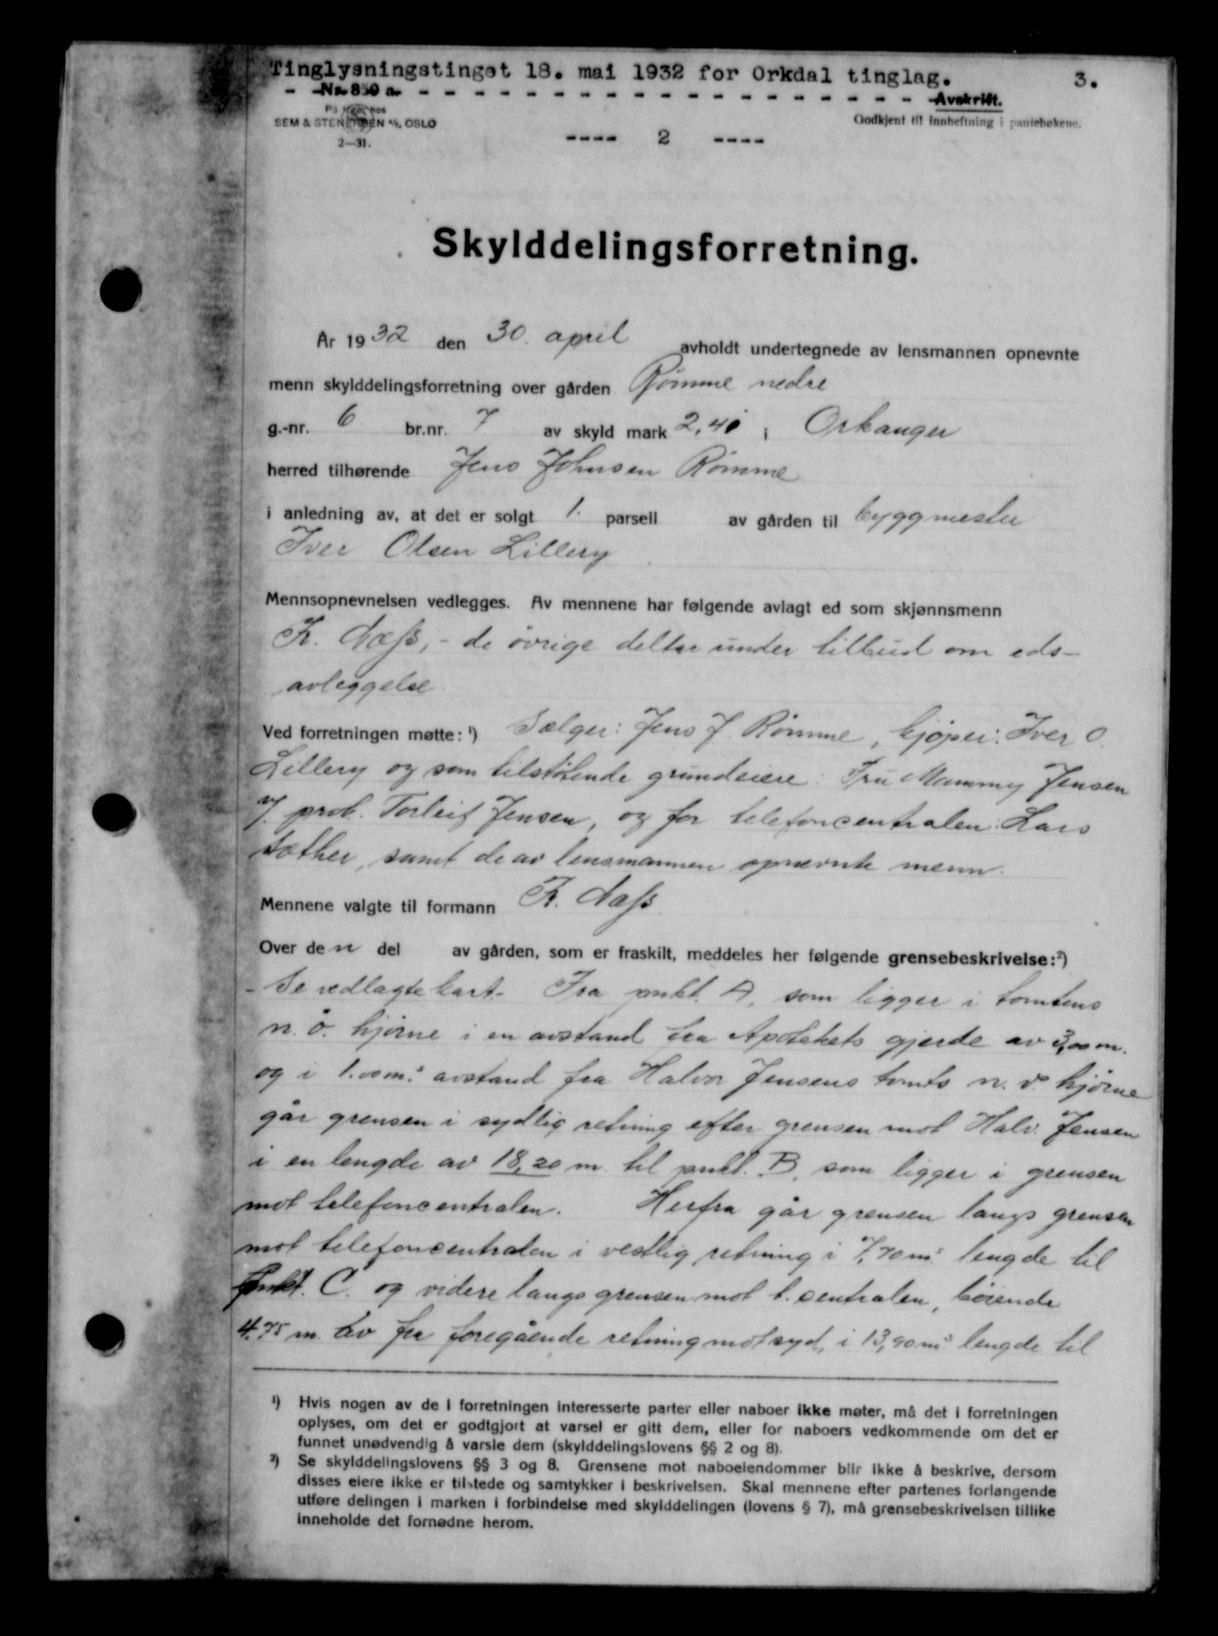 Tinglysningstinget 18. mai 1932 for Orkdal tinglag. 3.
Nr. 859 a. Avskrift.
På lager hos
SEM & STENERSEN A/S, OSLO Godkjent til innheftning i pantebøkene.
2—31.
---- 2 ----
Skylddelingsforretning.
År 1932 den 30. april avholdt undertegnede av lensmannen opnevnte
menn skylddelingsforretning over gården Rømme nedre
g.-nr. 6 br.nr. 7 av skyld mark 2,40 i Orkanger
herred tilhørende Jens Johnsen Rømme
i anledning av, at det er solgt 1. parsell av gården til byggmester
Iver Olsen Lillery
Mennsopnevnelsen vedlegges. Av mennene har følgende avlagt ed som skjønnsmenn
K. Næss, - de øvrige deltar under tilbud om eds-
avleggelse
Ved forretningen møtte: ¹) Sælger: Jens J. Rømme, kjøper: Iver O.
Lillery og som tilstøtende grundeiere: Fru Mammy Jensen
v/ prok. Torleif Jensen, og for telefoncentralen: Lars
Sæther, samt de av lensmannen opnevnte menn.
Mennene valgte til formann K. Næss
Over den del av gården, som er fraskilt, meddeles her følgende grensebeskrivelse: ²)
- Se vedlagte kart - Fra punkt A, som ligger i tomtens
n. ø. hjørne i en avstand fra Apotekets gjerde av 3,00 m.
og i 1.00 m.s avstand fra Halvor Jensens tomts n. v. hjørne
går grensen i sydlig retning efter grensen mot Halv. Jensen
i en lengde av 18,20 m. til punkt. B, som ligger i grensen
mot telefoncentralen. Herfra går grensen langs grensen
mot telefoncentralen i vestlig retning i 7,70 m.s lengde til
Punkt. C. og videre langs grensen mot t. centralen, bøiende
4.75 m. av fra foregående retning mot syd, i 13,90 m.s lengde til
¹) Hvis nogen av de i forretningen interesserte parter eller naboer ikke møter, må det i forretningen
oplyses, om det er godtgjort at varsel er gitt dem, eller for naboers vedkommende om det er
funnet unødvendig å varsle dem (skylddelingslovens §§ 2 og 8).
²) Se skylddelingslovens §§ 3 og 8. Grensene mot naboeiendommer blir ikke å beskrive, dersom
disses eiere ikke er tilstede og samtykker i beskrivelsen. Skal mennene efter partenes forlangende
utføre delingen i marken i forbindelse med skylddelingen (lovens § 7), må grensebeskrivelsen tillike
inneholde det fornødne herom.